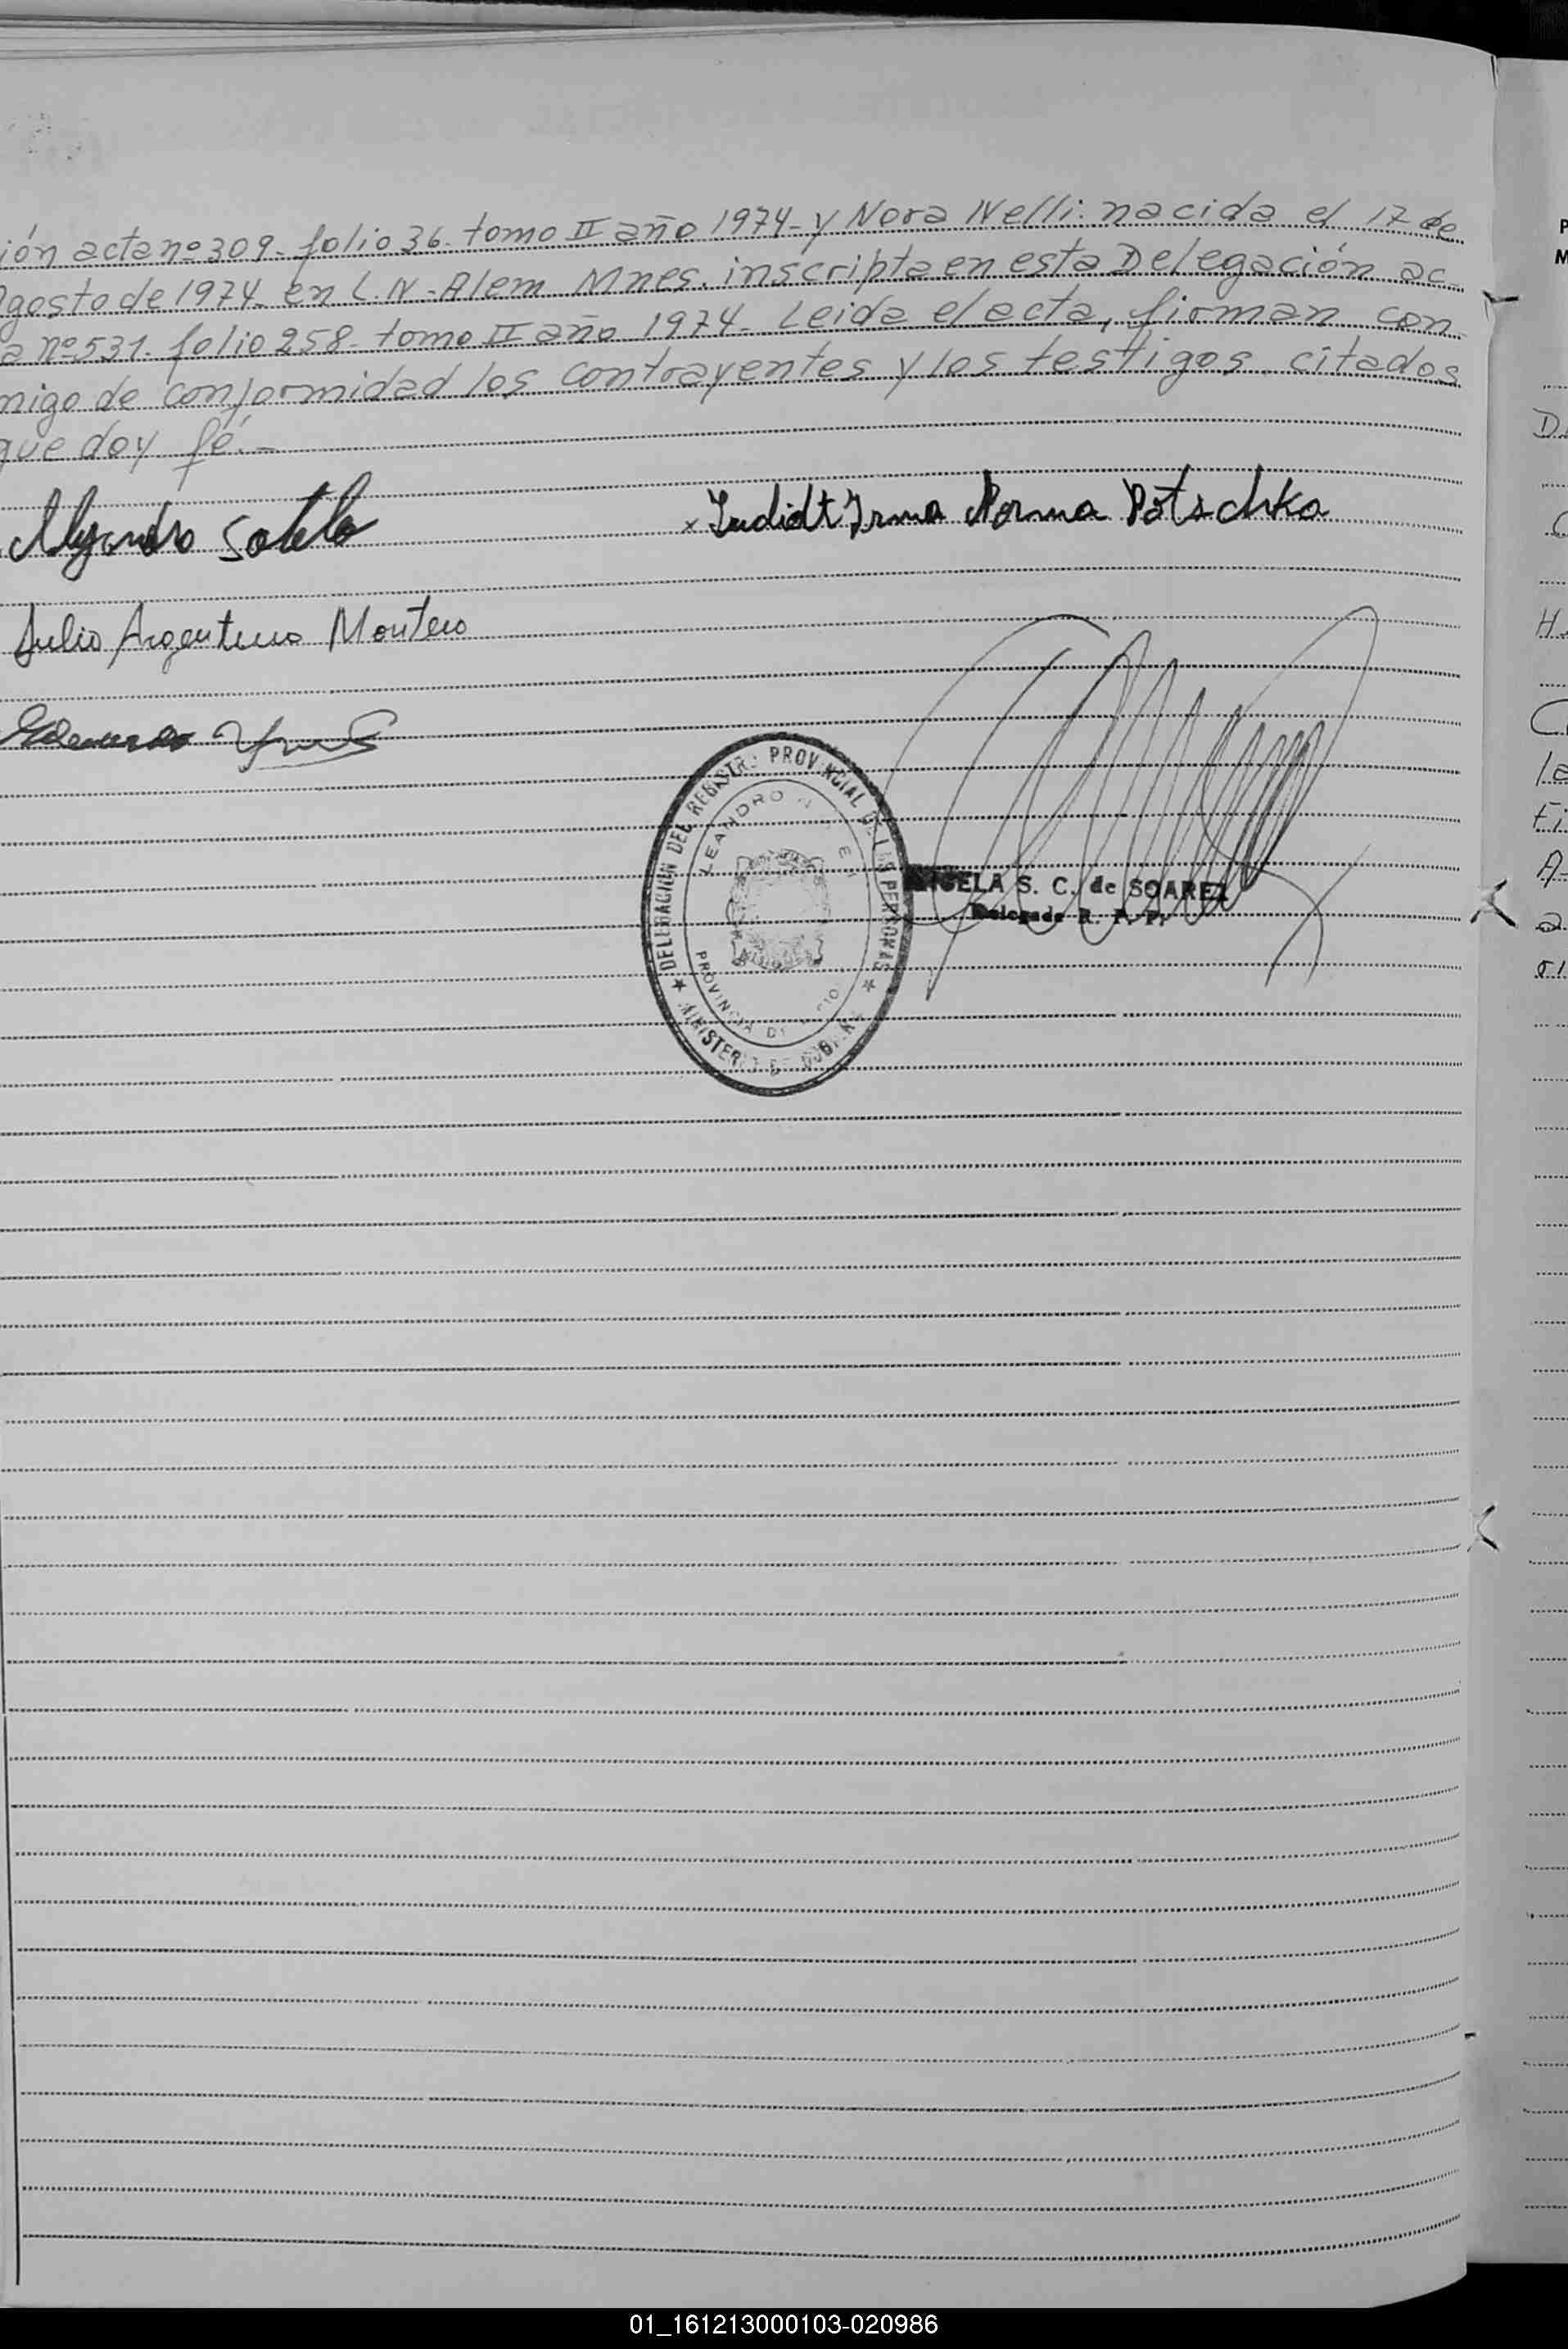 ión acta nº 309. folio 36. tomo II año 1974- y Nora Nelli: nacida el 17 de
gosto de 1974- en L. N. Alem Mnes. inscripta en esta Delegación ac-
a nº 531. folio 258. tomo II año 1974- Leida el acta, firman con
migo de conformidad los contrayentes y los testigos. citados
que doy fé.-
Alejandro Sotelo
x Iudidt Irma Norma Potschka
Julio Argentino Montero
DELEGACION DEL REGISTRO PROVINCIAL DE LAS PERSONAS
LEANDRO N
PROVINCIA DE
MINISTERIO DE
GELA S. C. de SOAREZ
Delegada R. P. P.
P
M
D
H.
la
A
a
01_161213000103-020986